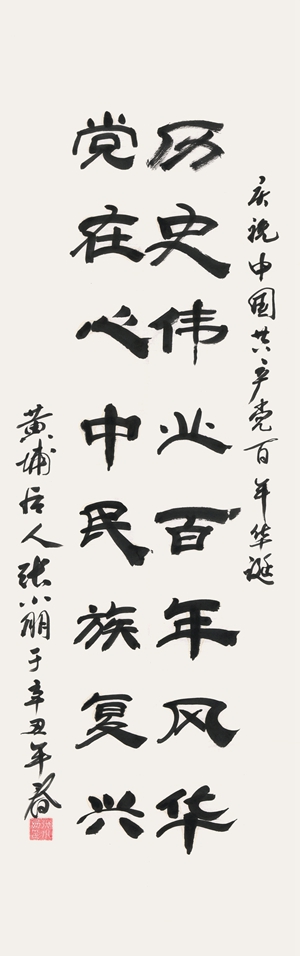 庆祝中国共产党百年华诞
历史伟业百年风华
党在心中民族复兴
黄埔后人张小朋于辛丑年春